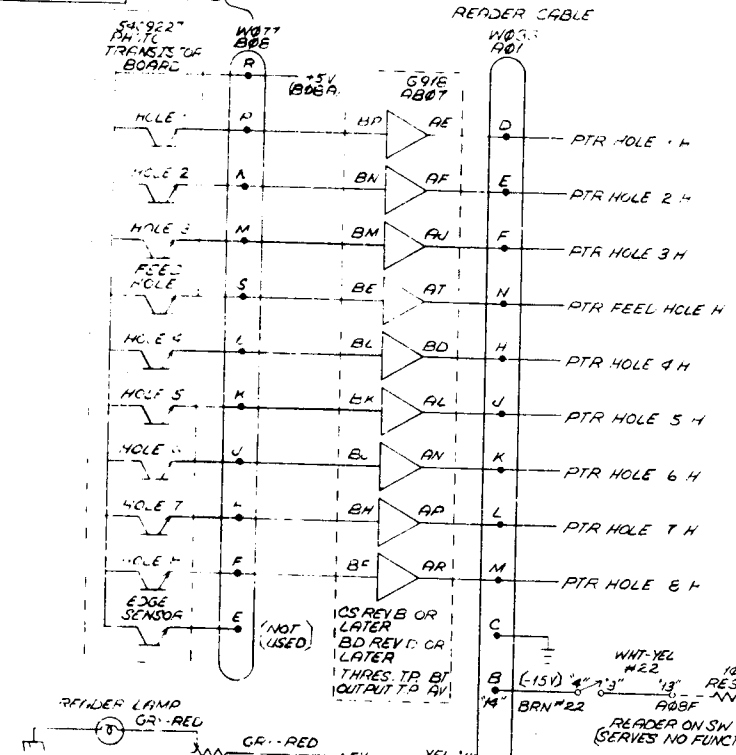 READER CABLE
TRANSISTOR
BOARD
BØ8
AØ1
R
+5V
(BØ8A
G918
ABØ7
HOLE
P
BP
AE
D
PTR HOLE H
HOLE 2
N
BN
AF
E
PTR HOLE 2 H
HOLE 3
M
BM
AJ
F
PTR HOLE 3 H
FEED
HOLE
S
BE
AT
N
PTR FEED HOLE H
HOLE 4
L
BL
BD
H
PTR HOLE 4 H
HOLE 5
K
BK
AL
J
PTR HOLE 5 H
HOLE
J
AN
K
PTR HOLE 6 H
HOLE 7
BH
AP
L
PTR HOLE 7 H
HOLE
F
BF
AR
M
PTR HOLE 8 H
EDGE
SENSOR
E
(NOT
USED)
CS REV B OR
LATER
BD REV OR
LATER
THRES. T.P. BT
OUTPUT T.P. AV
C
B
"14"
(-15V)
BRN #22
"4"
"3"
WHT-YEL
#22
"13"
AØ8F
READER ON SW
(SERVES NO FUNCT
READER LAMP